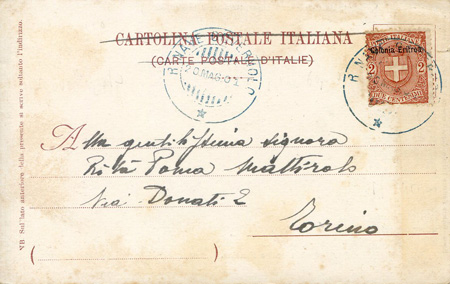 CARTOLINA POSTALE ITALIANA
(CARTE POSTALE D'ITALIE)
Colonia Eritrea
POSTE ITALIANE
2 2
DUE CENTESIMI
R. NAVE
MAG
Alla gentilissima signora
Rita Poma Mattirolo
Via Donati 2
Torino
NB Sul lato anteriore della presente si scrive soltanto l'indirizzo.